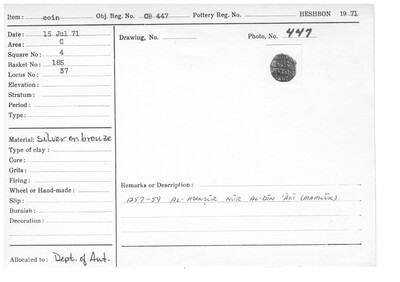 Item: coin Obj. Reg. No. OB 447 Pottery Reg. No. HESHBON 1971
Date: 15 Jul 71
Area: C
Square No: 4
Basket No: 185
Locus No: 37
Elevation:
Stratum:
Period:
Type:
Drawing, No:
Photo, No: 447
Material: silver on bronze
Type of clay:
Core:
Grits:
Firing:
Wheel or Hand-made:
Slip:
Burnish:
Decoration:
Remarks or Description:
1257-59 AL-MANṢŪR NŪR AL-DĪN 'ALĪ (MAMLŪK)
Allocated to: Dept. of Ant.